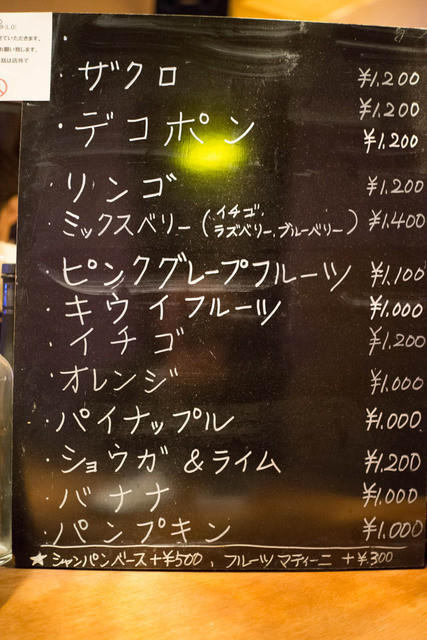 せていただきます。
お願い致します。
話は店外で
・ザクロ ¥1.200
¥1.200
・デコポン ¥1.200
・リンゴ ¥1.200
・ミックスベリー(イチゴ、ラズベリー、ブルーベリー) ¥1.400
・ピンクグレープフルーツ ¥1.100
・キウイフルーツ ¥1.000
・イチゴ ¥1.200
・オレンジ ¥1.000
・パイナップル ¥1.000
・ショウガ&ライム ¥1.200
・バナナ ¥1.000
・パンプキン ¥1.000
★シャンパンベース+¥500、フルーツマティーニ +¥300